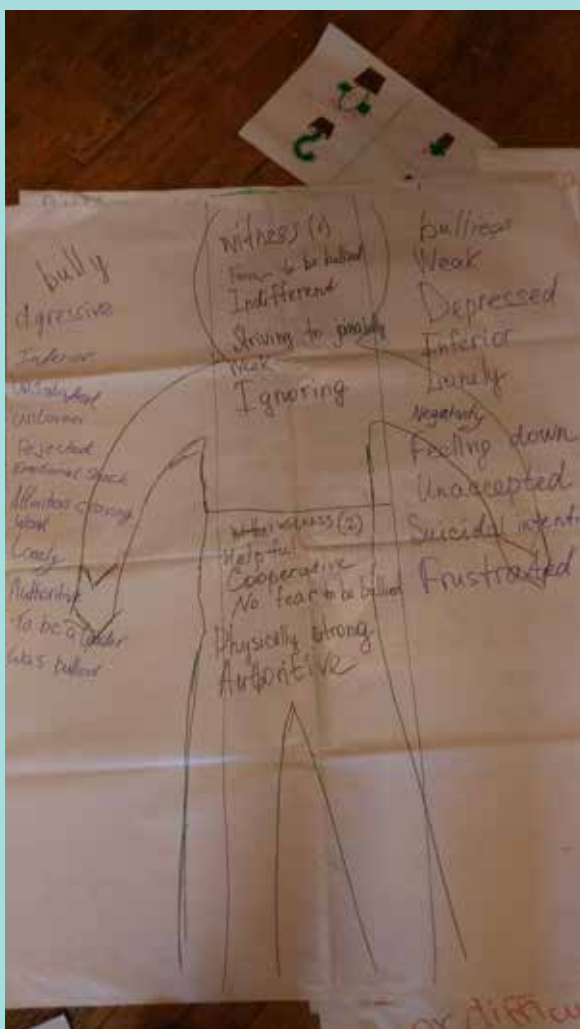 bully
Agressive
Inferior
Rejected
Emotional shock
Attention craving
Weak
Lonely
Authoritive
To be a leader
Was bullied
witness (1)
Fear to be bullied
Indifferent
Striving to
Weak
Ignoring
witness (2)
Helpful
Cooperative
No fear to be bullied
Physically strong
Authoritive
Weak
Depressed
Inferior
Lonely
Negativity
Feeling down
Unaccepted
Suicidal intenti
Frustrated
or difficu